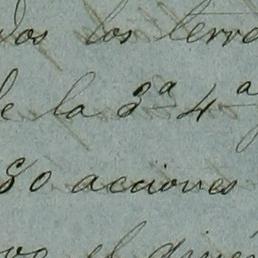 dos los terre
de la 3ª 4ª
80 acciones
el